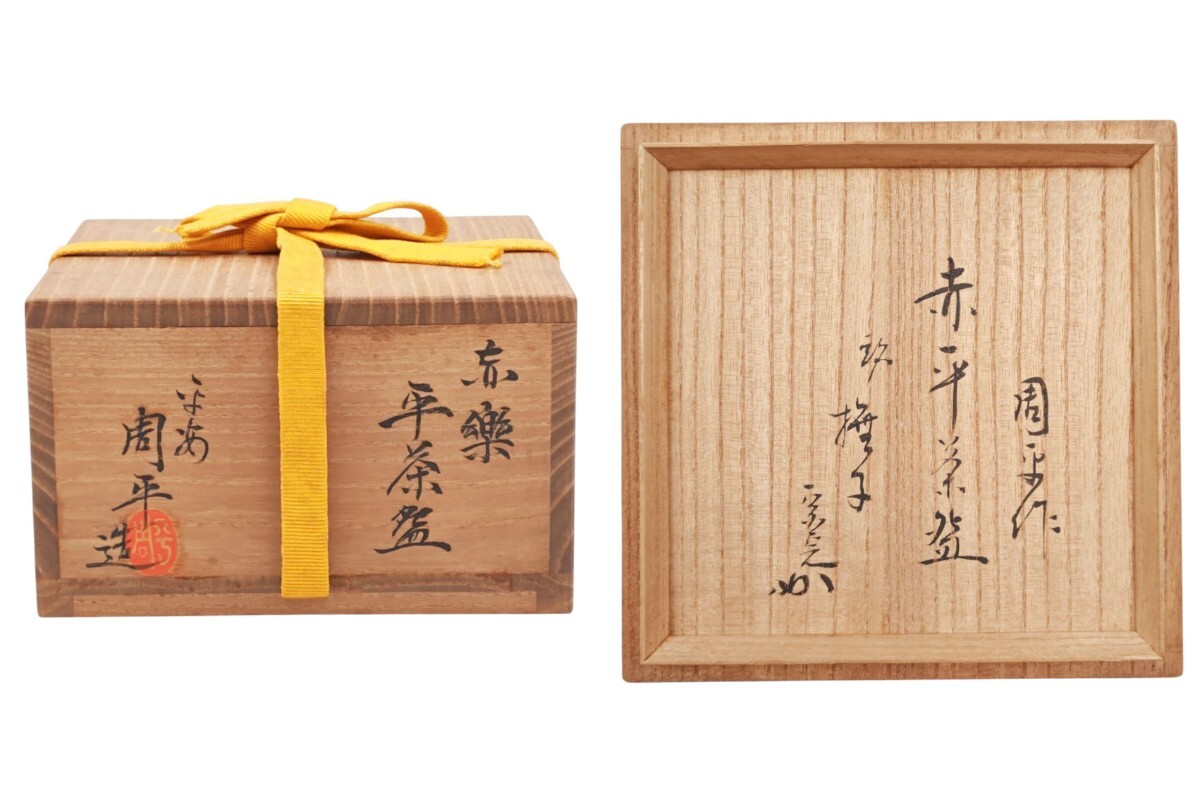 赤樂
平茶盌
平安
周平
造
周平作
赤平茶盌
銘
撫子